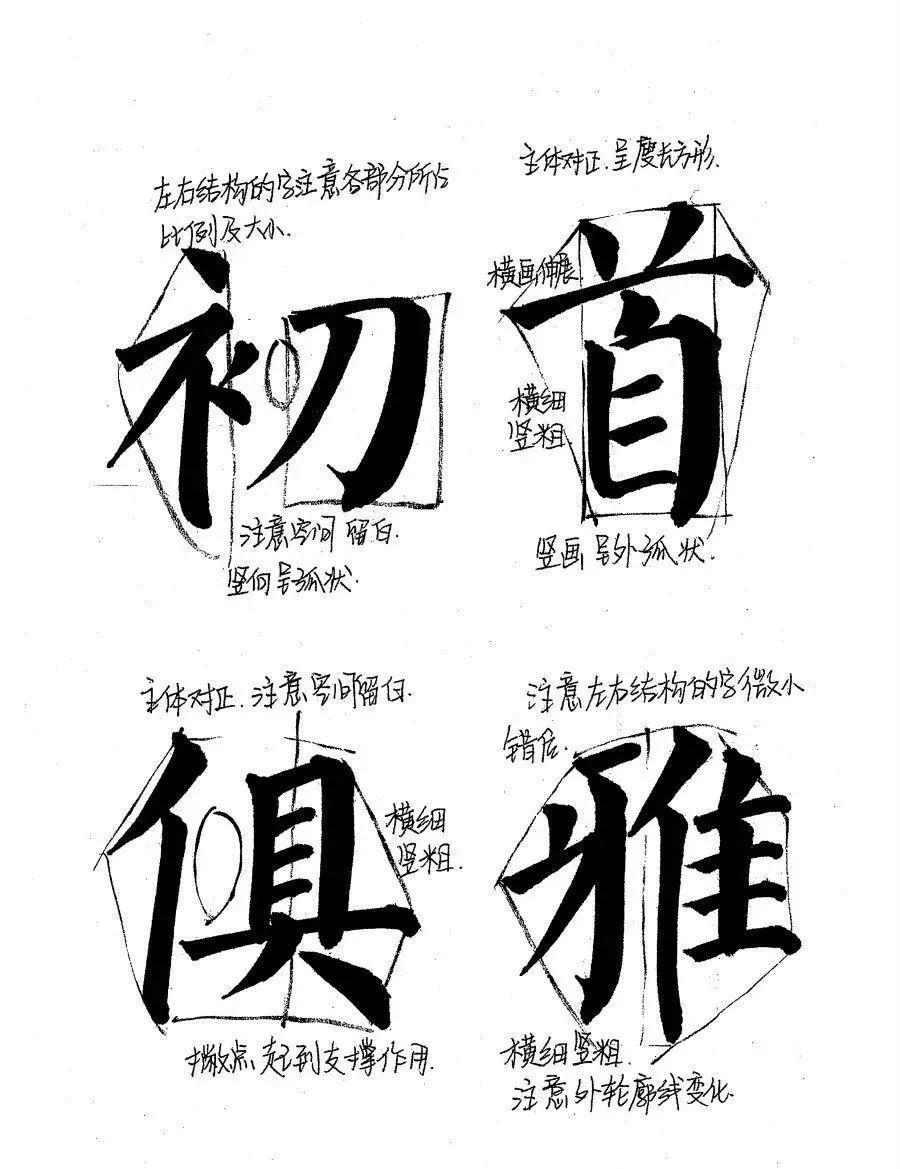 左右结构的字注意各部分所占
比例及大小.
初
注意空间留白.
竖向呈弧状.
主体对正.呈度长方形.
横画伸展.
首
横细
竖粗.
竖画呈外弧状.
主体对正.注意空间留白.
俱
横细
竖粗.
撇点起到支撑作用.
注意左右结构的字微小
错位.
雅
横细竖粗.
注意外轮廓线变化.